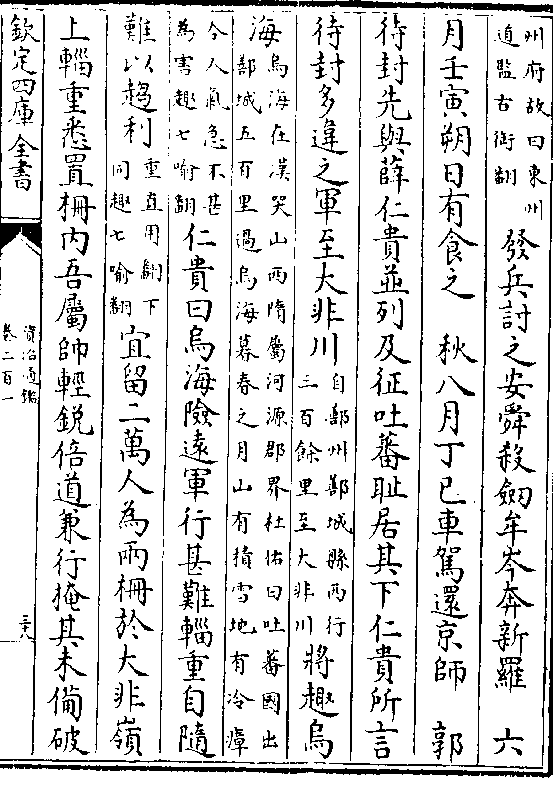 州府故曰東州
道監古銜翻
發兵討之安舜殺劒牟岑奔新羅 六
月壬寅朔日有食之 秋八月丁巳車駕還京師 郭
待封先與薛仁貴並列及征吐蕃耻居其下仁貴所言
待封多違之軍至大非川
自鄯州鄯城縣西行
三百餘里至大非川
將趣烏
海
烏海在漢哭山西隋屬河源郡界杜佑曰吐蕃國出
鄯城五百里過烏海暮春之月山有積雪地有冷瘴
令人氣急不甚
為害趣七喻翻
仁貴曰烏海險遠軍行甚難輜重自隨
難以趨利
重直用翻下
同趣七喻翻
宜留二萬人為兩柵於大非嶺
上輜重悉置柵内吾屬帥輕鋭倍道兼行掩其未備破
欽定四庫全書
資治通鑑
卷二百一
三十八